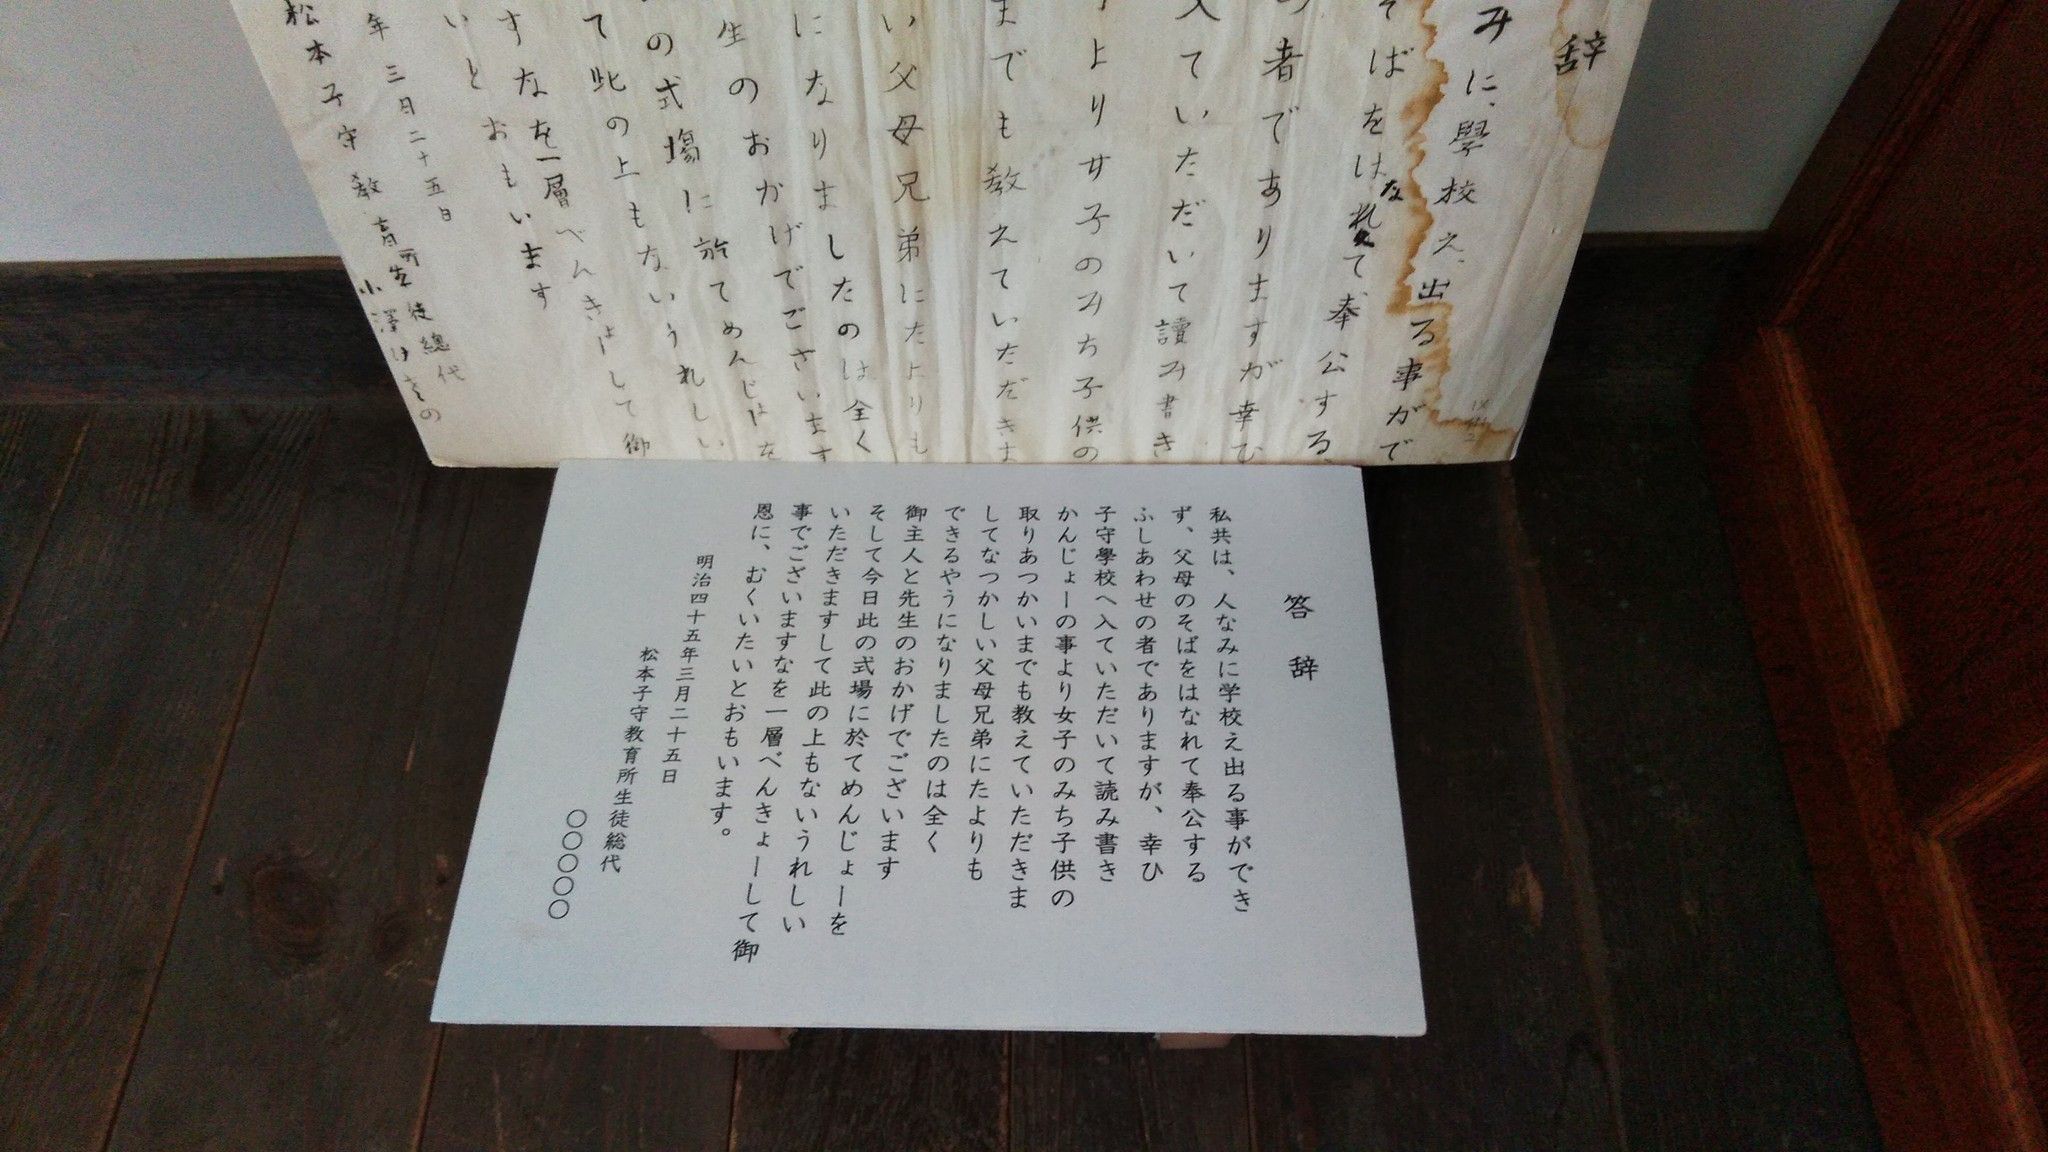 辞
みに、學校え、出る事がで
そばをはなれて奉公する、
者でありますが幸ひ
入ていただいて讀み書き
より女子のみち子供の
までも教えていただきま
い父母兄弟にたよりも
になりましたのは全く
生のおかげでございます
の式場に於てめんじょを
て此の上もないうれしい
すなを一層べんきょーして御
いとおもいます
年三月二十五日
松本子守教育所生徒總代
答辞
私共は、人なみに学校え出る事ができ
ず、父母のそばをはなれて奉公する
ふしあわせの者でありますが、幸ひ
子守學校へ入ていただいて読み書き
かんじょーの事より女子のみち子供の
取りあつかいまでも教えていただきま
してなつかしい父母兄弟にたよりも
できるやうになりましたのは全く
御主人と先生のおかげでございます
そして今日此の式場に於てめんじょーを
いただきますして此の上もないうれしい
事でございますなを一層べんきょーして御
恩に、むくいたいとおもいます。
明治四十五年三月二十五日
松本子守教育所生徒総代
〇〇〇〇〇